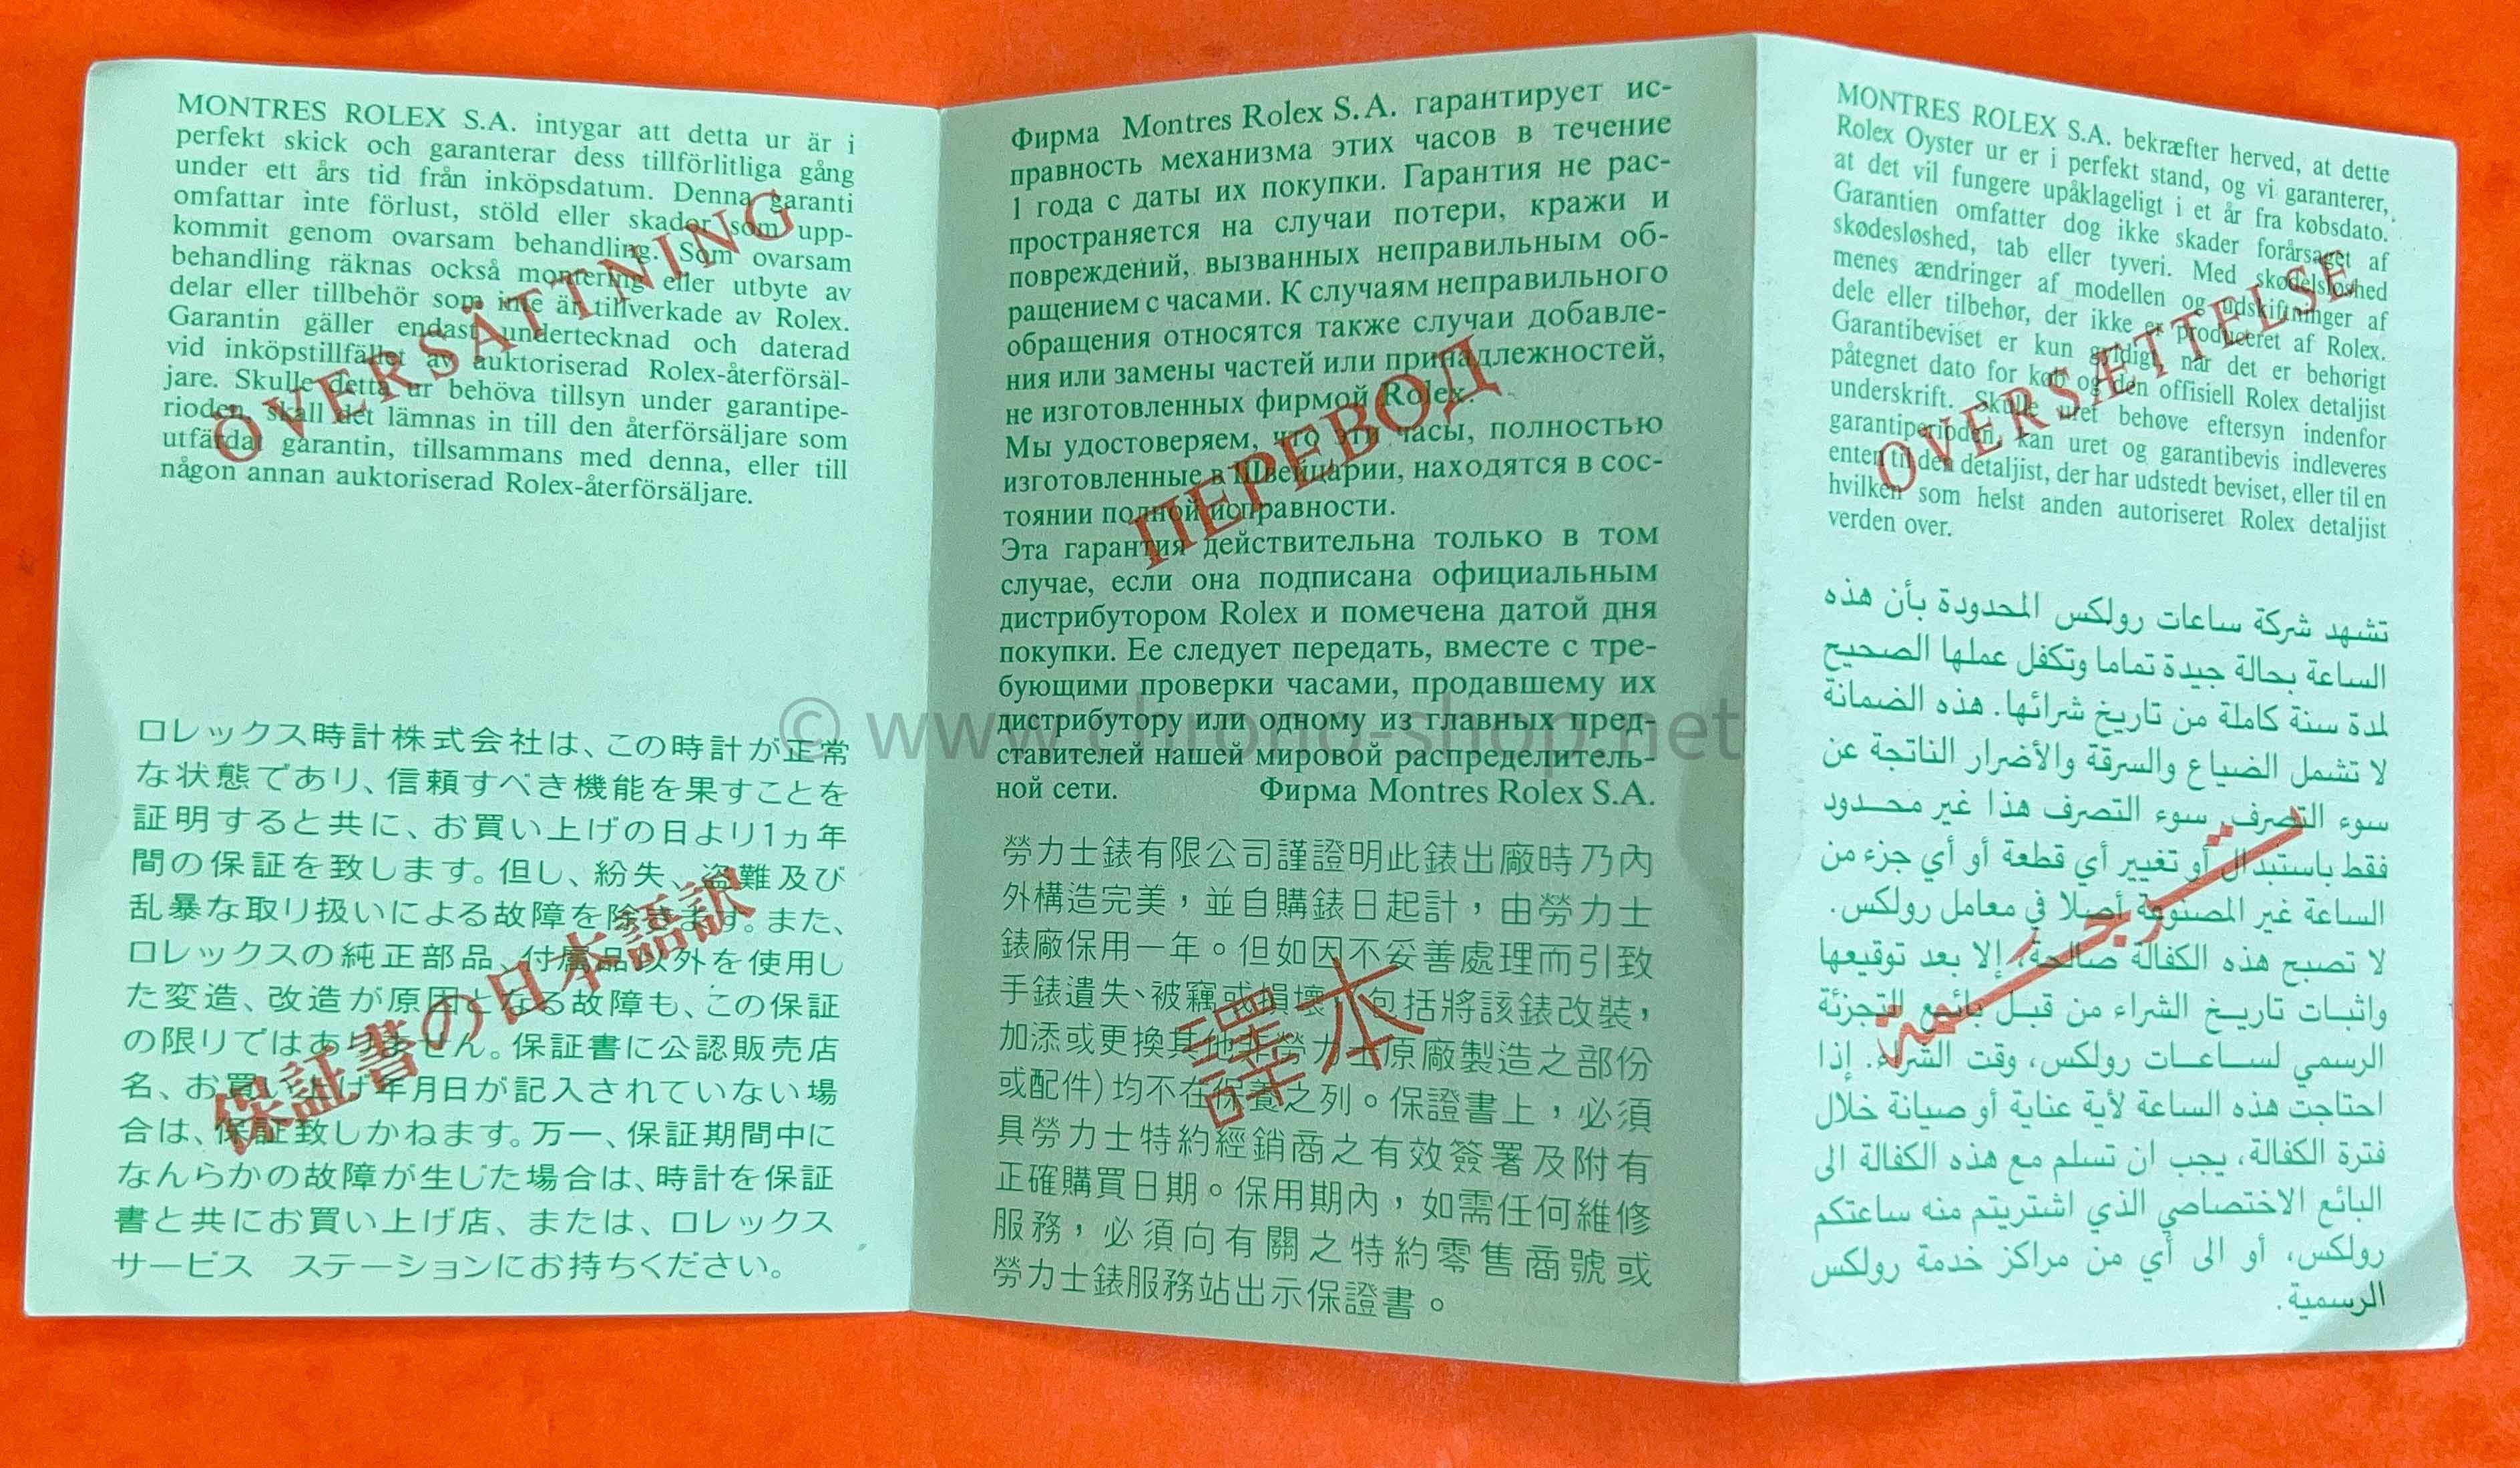 MONTRES ROLEX S.A. intygar att detta ur är i
perfekt skick och garanterar dess tillförlitliga gång
under ett års tid från inköpsdatum. Denna garanti
omfattar inte förlust, stöld eller skador som upp-
kommit genom ovarsam behandling. Som ovarsam
behandling räknas också montering eller utbyte av
delar eller tillbehör som inte är tillverkade av Rolex.
Garantin gäller endast undertecknad och daterad
vid inköpstillfället av auktoriserad Rolex-återförsäl-
jare. Skulle detta ur behöva tillsyn under garantipe-
rioden, skall det lämnas in till den återförsäljare som
utfärdat garantin, tillsammans med denna, eller till
någon annan auktoriserad Rolex-återförsäljare.
ÖVERSÄTTNING
ロレックス時計株式会社は、この時計が正常
な状態であり、信頼すべき機能を果すことを
証明すると共に、お買い上げの日より1ヵ年
間の保証を致します。但し、紛失、盗難及び
乱暴な取り扱いによる故障を除きます。また、
ロレックスの純正部品、付属品以外を使用し
た変造、改造が原因となる故障も、この保証
の限りではありません。保証書に公認販売店
名、お買い上げ年月日が記入されていない場
合は、保証致しかねます。万一、保証期間中に
なんらかの故障が生じた場合は、時計を保証
書と共にお買い上げ店、または、ロレックス
サービス ステーションにお持ちください。
保証書の日本語訳
Фирма Montres Rolex S.A. гарантирует ис-
правность механизма этих часов в течение
1 года с даты их покупки. Гарантия не рас-
пространяется на случаи потери, кражи и
повреждений, вызванных неправильным об-
ращением с часами. К случаям неправильного
обращения относятся также случаи добавле-
ния или замены частей или принадлежностей,
не изготовленных фирмой Rolex.
Мы удостоверяем, что эти часы, полностью
изготовленные в Швейцарии, находятся в сос-
тоянии полной исправности.
Эта гарантия действительна только в том
случае, если она подписана официальным
дистрибутором Rolex и помечена датой дня
покупки. Ее следует передать, вместе с тре-
бующими проверки часами, продавшему их
дистрибутору или одному из главных пред-
ставителей нашей мировой распределитель-
ной сети. Фирма Montres Rolex S.A.
ПЕРЕВОД
勞力士錶有限公司謹證明此錶出廠時乃內
外構造完美，並自購錶日起計，由勞力士
錶廠保用一年。但如因不妥善處理而引致
手錶遺失、被竊或損壞，（包括將該錶改裝，
加添或更換其他非勞力士原廠製造之部份
或配件）均不在保養之列。保證書上，必須
具勞力士特約經銷商之有效簽署及附有
正確購買日期。保用期內，如需任何維修
服務，必須向有關之特約零售商號或
勞力士錶服務站出示保證書。
譯本
MONTRES ROLEX S.A. bekræfter herved, at dette
Rolex Oyster ur er i perfekt stand, og vi garanterer,
at det vil fungere upåklageligt i et år fra købsdato.
Garantien omfatter dog ikke skader forårsaget af
skødesløshed, tab eller tyveri. Med skødesløshed
menes ændringer af modellen og udskiftninger af
dele eller tilbehør, der ikke er produceret af Rolex.
Garantibeviset er kun gyldigt, når det er behørigt
påtegnet dato for køb og den offisiell Rolex detaljist
underskrift. Skulle uret behøve eftersyn indenfor
garantiperioden, kan uret og garantibevis indleveres
enten til den detaljist, der har udstedt beviset, eller til en
hvilken som helst anden autoriseret Rolex detaljist
verden over.
OVERSÆTTELSE
تشهد شركة ساعات رولكس المحدودة بأن هذه
الساعة بحالة جيدة تماما وتكفل عملها الصحيح
لمدة سنة كاملة من تاريخ شرائها. هذه الضمانة
لا تشمل الضياع والسرقة والأضرار الناتجة عن
سوء التصرف. سوء التصرف هذا غير محدود
فقط باستبدال أو تغيير أي قطعة أو أي جزء من
الساعة غير المصنوعة أصلا في معامل رولكس.
لا تصبح هذه الكفالة صالحة، إلا بعد توقيعها
واثبات تاريخ الشراء من قبل بائع التجزئة
الرسمي لساعات رولكس، وقت الشراء. إذا
احتاجت هذه الساعة لأية عناية أو صيانة خلال
فترة الكفالة، يجب ان تسلم مع هذه الكفالة الى
البائع الاختصاصي الذي اشتريتم منه ساعتكم
رولكس، أو الى أي من مراكز خدمة رولكس
الرسمية.
ترجمة
© www.chrono-shop.net